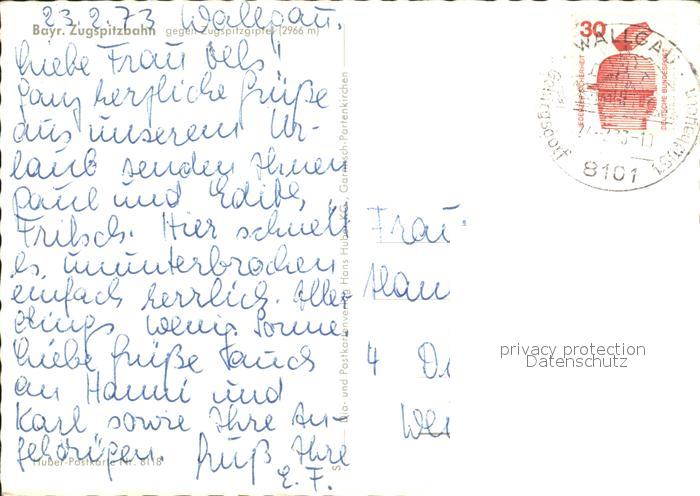 23.2.73 Wallgau.
Bayr. Zugspitzbahn gegen Zugspitzgipfel (2966 m)
Liebe Frau Oels!
Ganz herzliche Grüße
aus unserem Ur-
laub senden Ihnen
Paul und Edith
Fritsch. Hier schneit
es ununterbrochen
einfach herrlich. Aller-
dings wenig Sonne.
Liebe Grüße auch
an Hanni und
Karl sowie Ihre An-
gehörigen. Gruß Ihre
E. F.
Huber-Postkarte Nr. 8118
Dia- und Postkartenverlag Hans Huber KG., Garmisch-Partenkirchen
30
DEUTSCHE BUNDESPOST
WALLGAU
8101
Gebirgsdorf
Frau
Han
4 D
Wei
privacy protection
Datenschutz